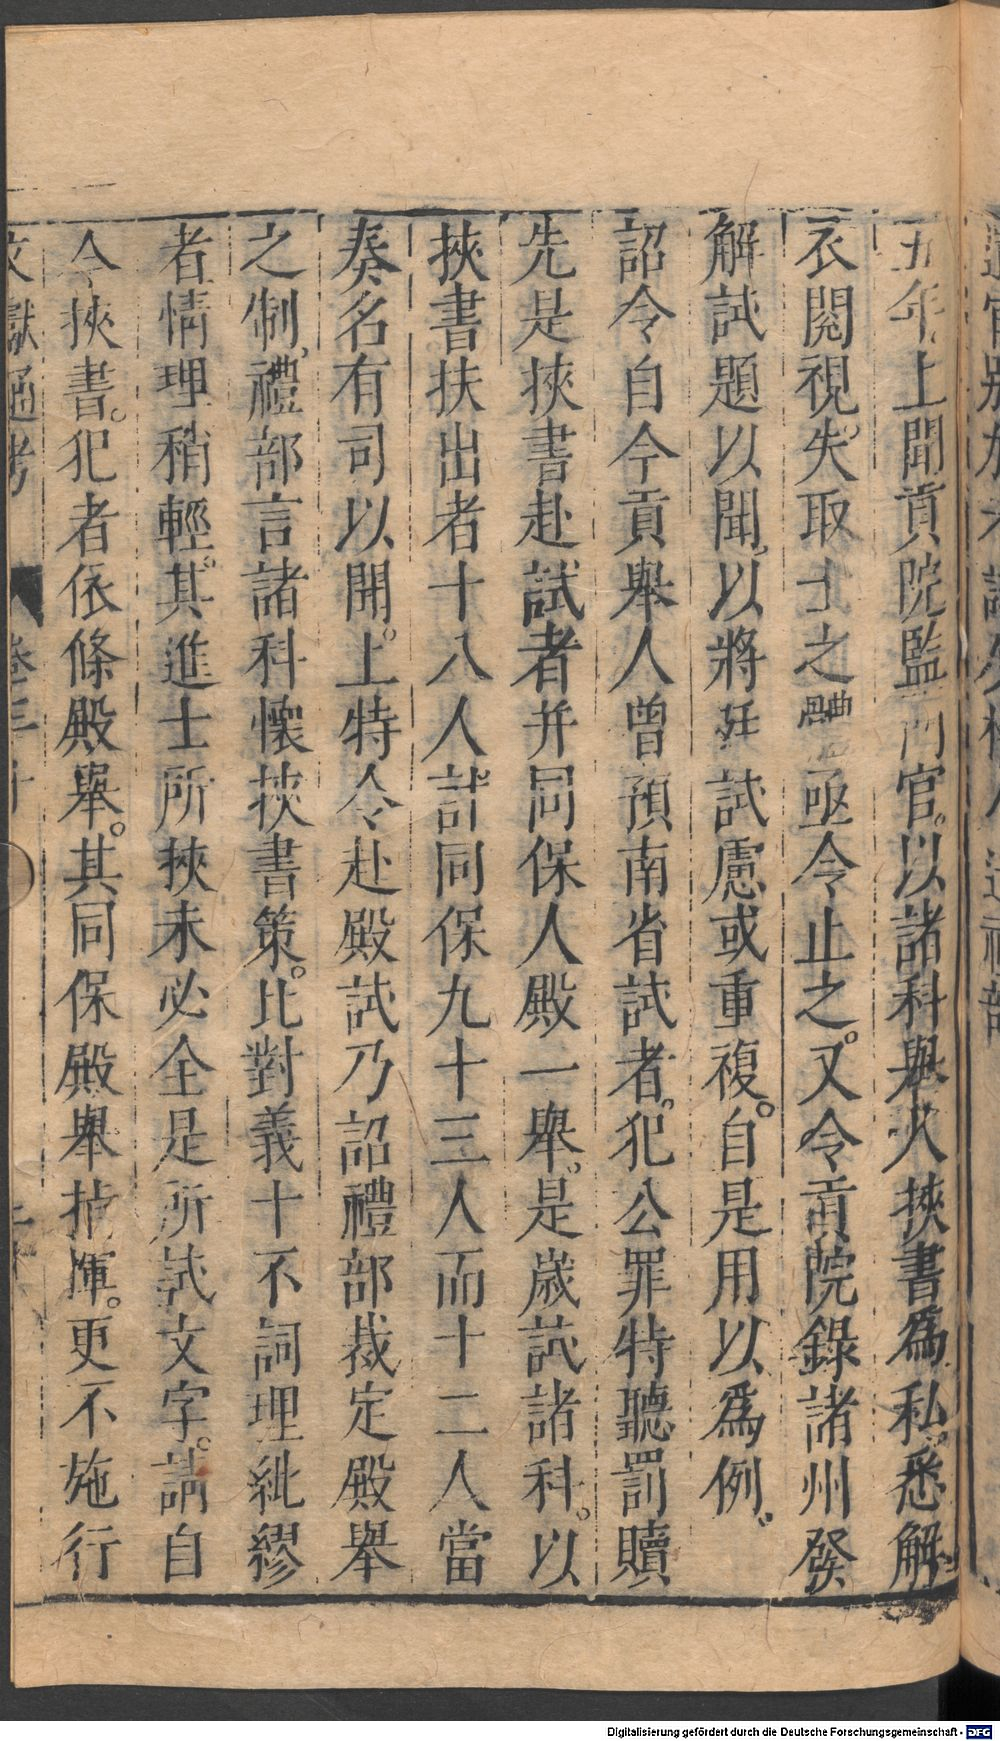 五年上聞貢院監門官以諸科舉人挾書爲私悉解
衣閱視失取士之體亟令止之又令貢院錄諸州發
解試題以聞以將廷試慮或重複自是用以爲例
詔令自今貢舉人曾預南省試者犯公罪特聽罰贖
先是挾書赴試者并同保人殿一舉是歲試諸科以
挾書扶出者十八人計同保九十三人而十二人當
奏名有司以開上特令赴殿試乃詔禮部裁定殿舉
之制禮部言諸科懷挾書策比對義十不詞理紕繆
者情理稍輕其進士所挾未必全是所試文字請自
今挾書犯者依條殿舉其同保殿舉指揮更不施行
文獻通考 卷三十
Digitalisierung gefördert durch die Deutsche Forschungsgemeinschaft - DFG